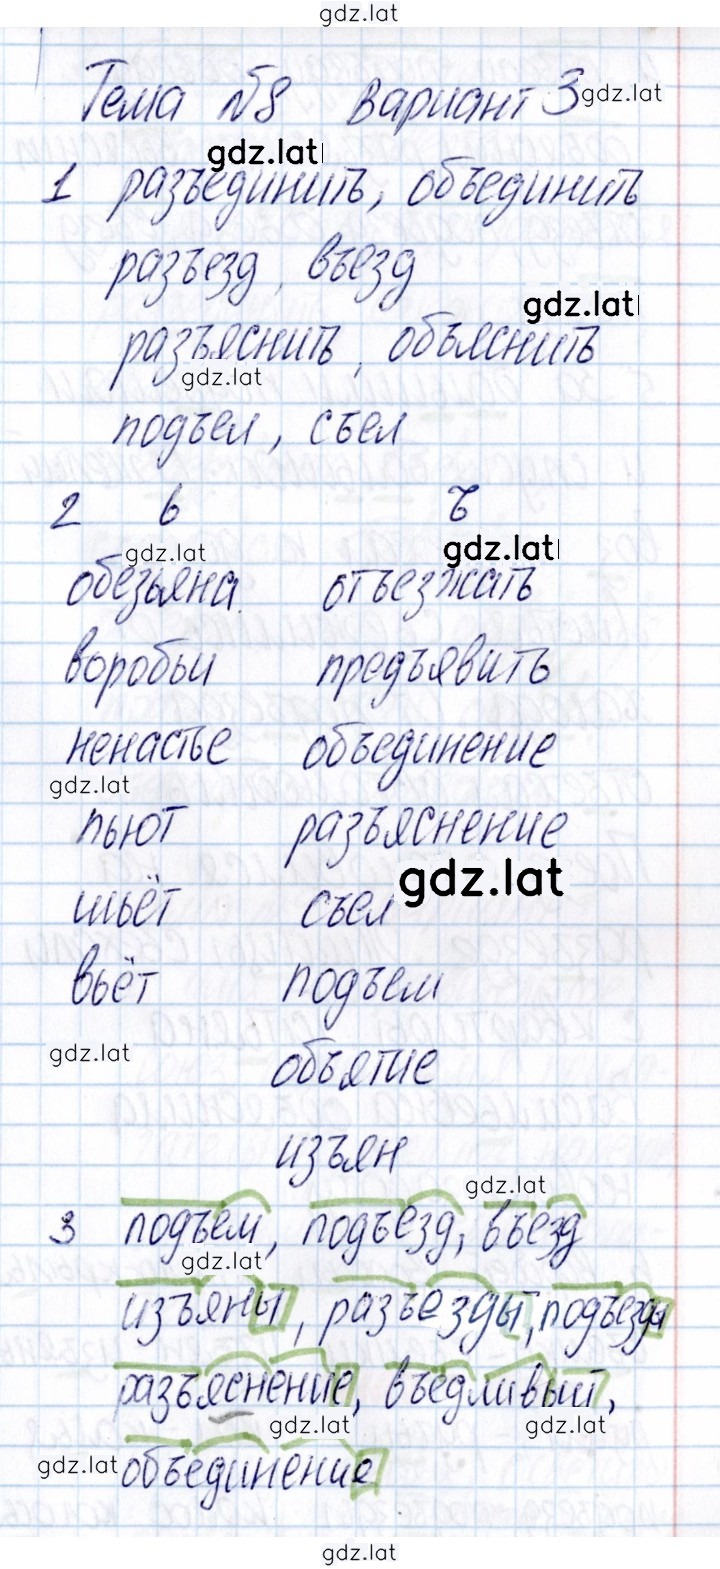 gdz.lat
Тема №8 Вариант 3 gdz.lat
gdz.lat
1 разъединить, объединить
разъезд, въезд
gdz.lat
разъяснить, объяснить
gdz.lat
подъел, съел
2 ь ъ
gdz.lat gdz.lat
обезьяна отъезжать
воробьи предъявить
ненастье объединение
gdz.lat
пьют разъяснение
gdz.lat
шьёт съел
вьёт подъем
gdz.lat
объятие
изъян
gdz.lat
3 подъем, подъезд, въезд
gdz.lat
изъяны, разъезды, подъезды
разъяснение, въедливый,
gdz.lat gdz.lat
gdz.lat объединение
gdz.lat